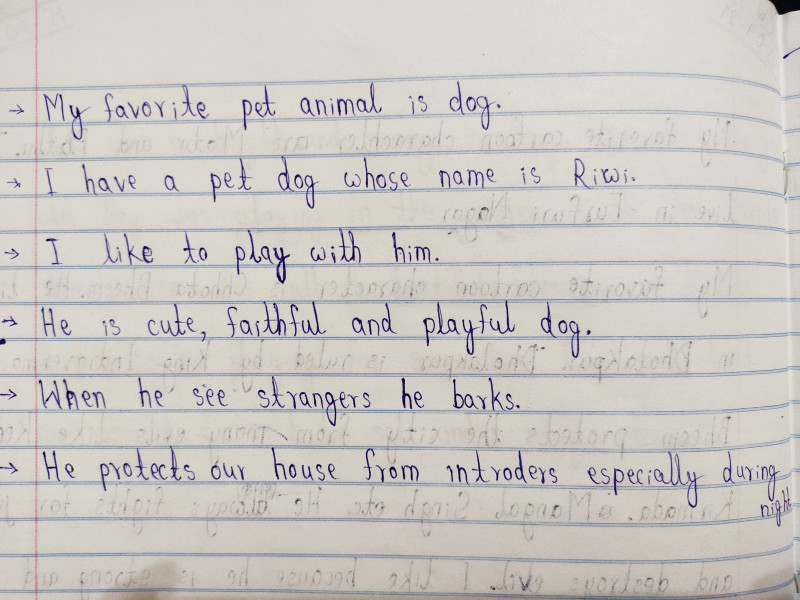 → My favorite pet animal is dog.
→ I have a pet dog whose name is Riwi.
→ I like to play with him.
→ He is cute, faithful and playful dog.
→ When he see strangers he barks.
→ He protects our house from introders especially during
night